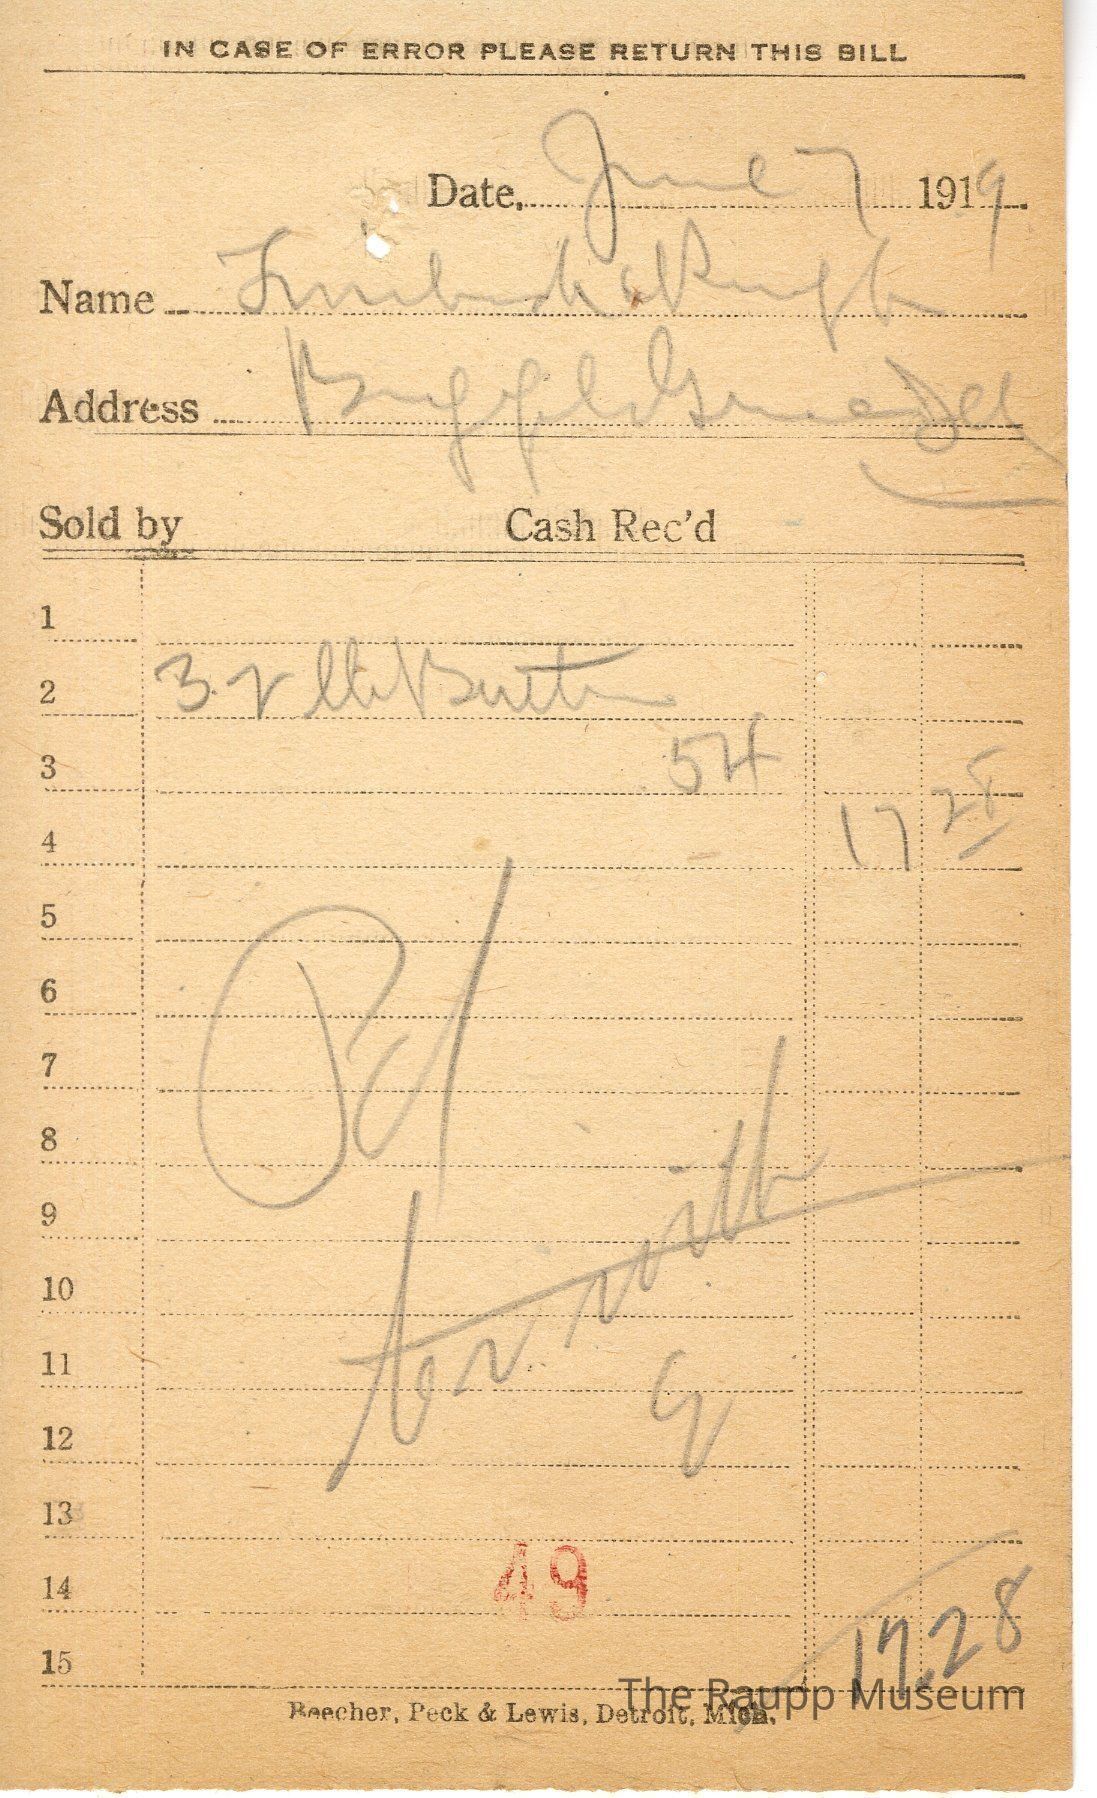 IN CASE OF ERROR PLEASE RETURN THIS BILL
Date, June 7 1919
Name
Address
Sold by Cash Rec'd
1
2 32 lb Butter
3 54
4 17 28
5
6
7
8
9
10
11
12
13
14 49
15 17.28
Beecher, Peck & Lewis, Detroit, Mich.
The Raupp Museum